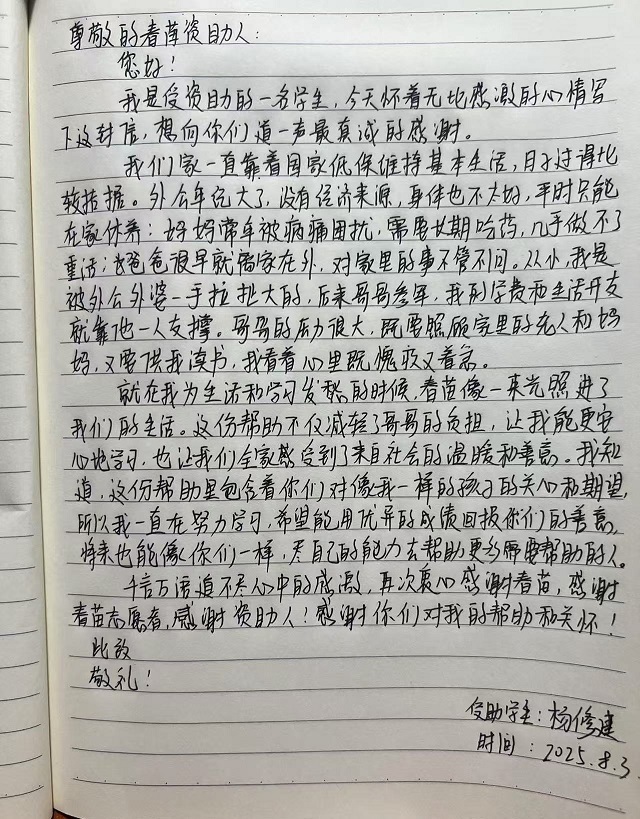 尊敬的春苗资助人:
您好!
我是受资助的一名学生,今天怀着无比感激的心情写
下这封信,想向你们道一声最真诚的感谢。
我们家一直靠着国家低保维持基本生活,日子过得比
较拮据。外公年纪大了,没有经济来源,身体也不太好,平时只能
在家休养;妈妈常年被病痛困扰,需要长期吃药,几乎做不了
重活;爸爸很早就离家在外,对家里的事不管不问。从小,我是
被外公外婆一手拉扯大的,后来哥哥参军,我的学费和生活开支
就靠他一人支撑。哥哥的压力很大,既要照顾家里的老人和妈
妈,又要供我读书,我看着心里既愧疚又着急。
就在我为生活和学习发愁的时候,春苗像一束光照进了
我们的生活。这份帮助不仅减轻了哥哥的负担,让我能更安
心地学习,也让我们全家感受到了来自社会的温暖和善意。我知
道,这份帮助里包含着你们对像我一样的孩子的关心和期望,
所以我一直在努力学习,希望能用优异的成绩回报你们的善意,
将来也能像你们一样,尽自己的能力去帮助更多需要帮助的人。
千言万语道不尽心中的感激,再次衷心感谢春苗,感谢
春苗志愿者,感谢资助人!感谢你们对我的帮助和关怀!
此致
敬礼!
受助学生:杨修建
时间:2025.8.3